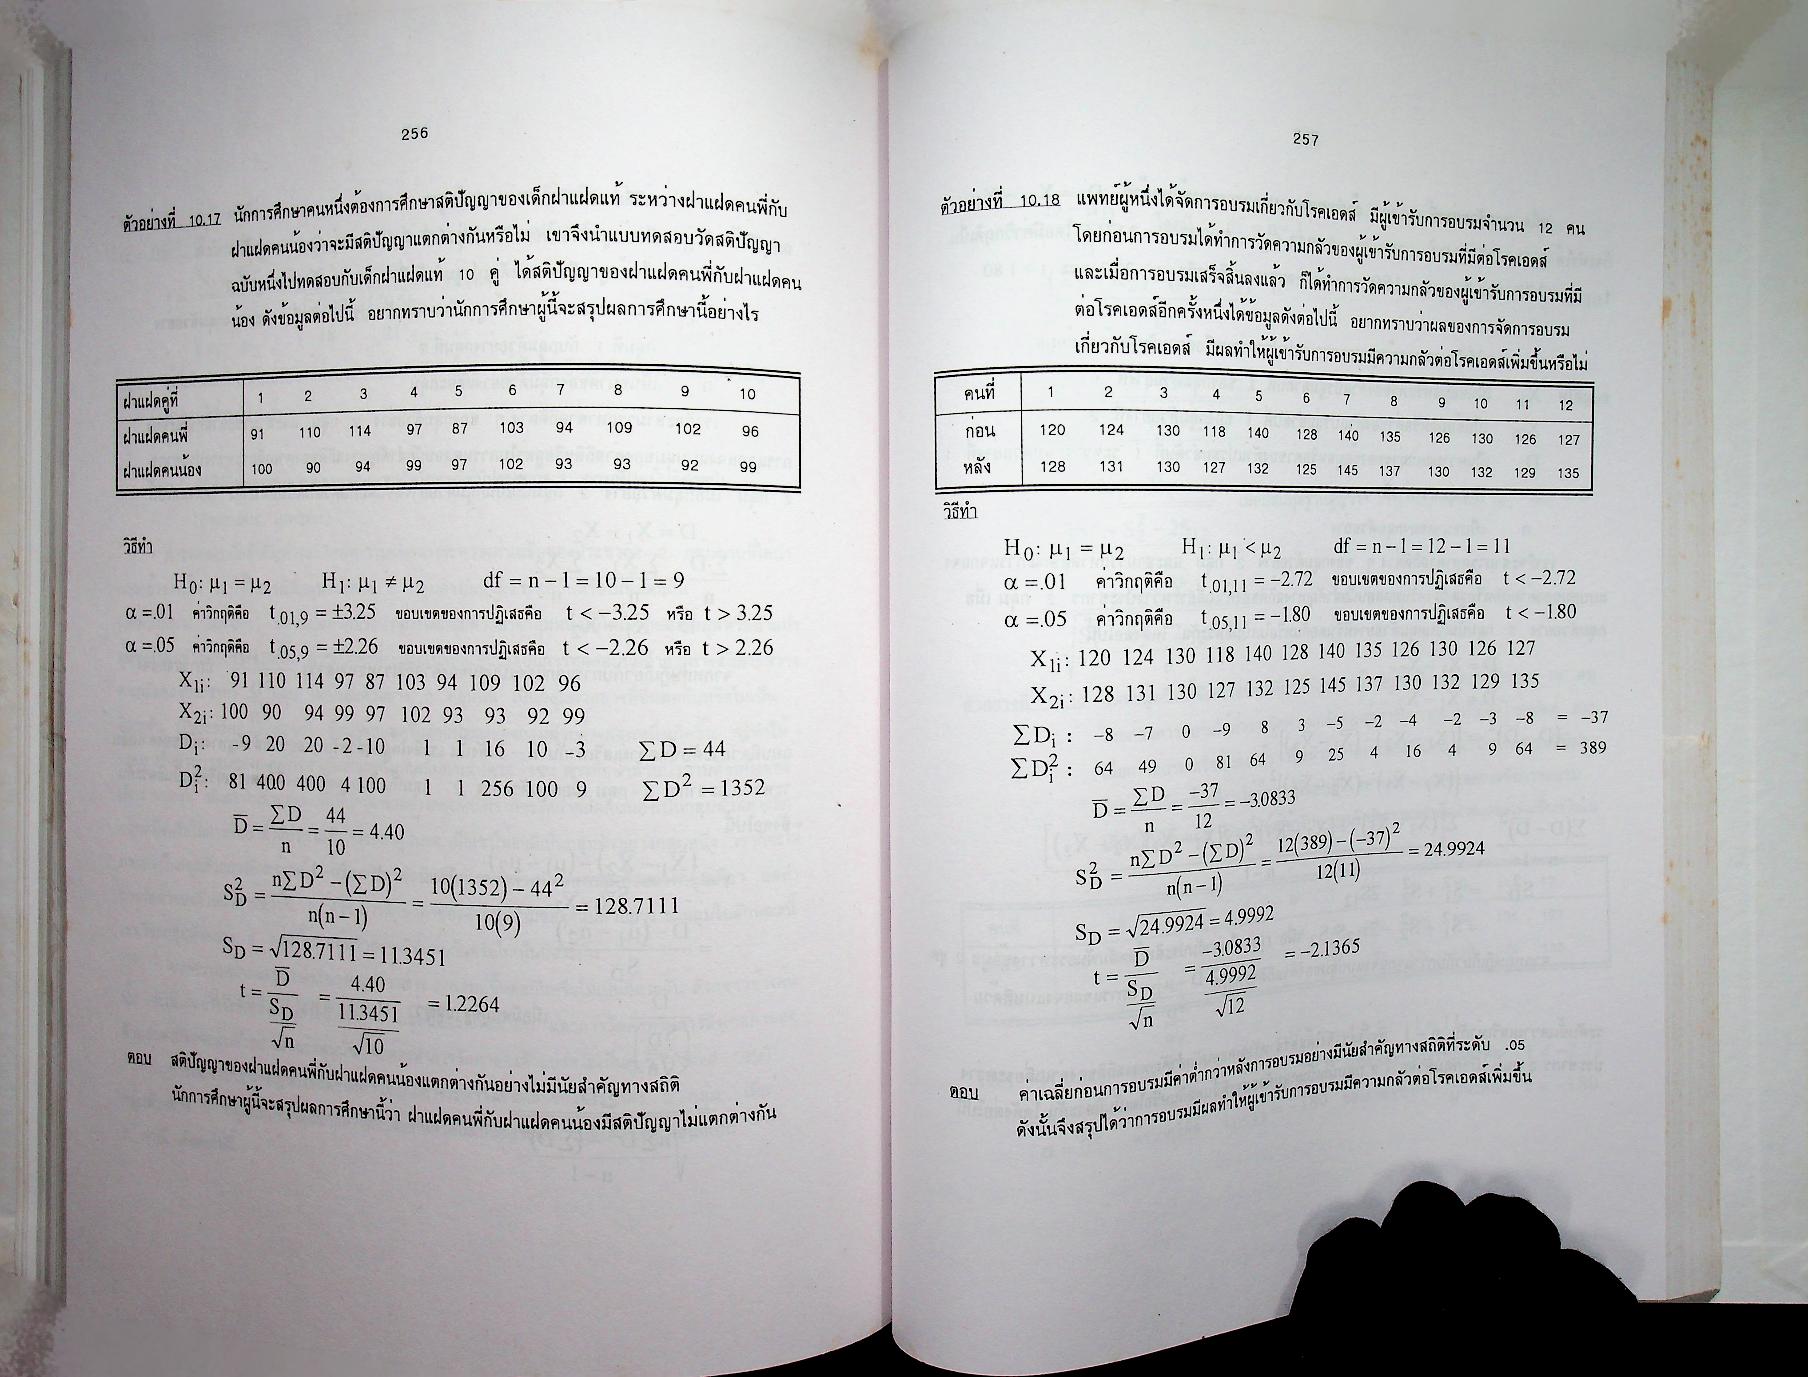 256
ตัวอย่างที่ 10.17 นักการศึกษาคนหนึ่งต้องการศึกษาสติปัญญาของเด็กฝาแฝดแท้ ระหว่างฝาแฝดคนพี่กับ
ฝาแฝดคนน้องว่าจะมีสติปัญญาแตกต่างกันหรือไม่ เขาจึงนำแบบทดสอบวัดสติปัญญา
ฉบับหนึ่งไปทดสอบกับเด็กฝาแฝดแท้ 10 คู่ ได้สติปัญญาของฝาแฝดคนพี่กับฝาแฝดคน
น้อง ดังข้อมูลต่อไปนี้ อยากทราบว่านักการศึกษาผู้นี้จะสรุปผลการศึกษานี้อย่างไร
ฝาแฝดคู่ที่ 1 2 3 4 5 6 7 8 9 10
ฝาแฝดคนพี่ 91 110 114 97 87 103 94 109 102 96
ฝาแฝดคนน้อง 100 90 94 99 97 102 93 93 92 99
วิธีทำ
H₀: μ₁ = μ₂ H₁: μ₁ ≠ μ₂ df = n − 1 = 10 − 1 = 9
α =.01 ค่าวิกฤติคือ t.01,9 = ±3.25 ขอบเขตของการปฏิเสธคือ t < −3.25 หรือ t > 3.25
α =.05 ค่าวิกฤติคือ t.05,9 = ±2.26 ขอบเขตของการปฏิเสธคือ t < −2.26 หรือ t > 2.26
X₁ᵢ: 91 110 114 97 87 103 94 109 102 96
X₂ᵢ: 100 90 94 99 97 102 93 93 92 99
Dᵢ: -9 20 20 -2 -10 1 1 16 10 -3 ΣD = 44
Dᵢ²: 81 400 400 4 100 1 1 256 100 9 ΣD² = 1352
D̅ = ΣD/n = 44/10 = 4.40
S²_D = (nΣD² − (ΣD)²)/(n(n − 1)) = (10(1352) − 44²)/(10(9)) = 128.7111
S_D = √128.7111 = 11.3451
t = D̅/(S_D/√n) = 4.40/(11.3451/√10) = 1.2264
ตอบ สติปัญญาของฝาแฝดคนพี่กับฝาแฝดคนน้องแตกต่างกันอย่างไม่มีนัยสำคัญทางสถิติ
นักการศึกษาผู้นี้จะสรุปผลการศึกษานี้ว่า ฝาแฝดคนพี่กับฝาแฝดคนน้องมีสติปัญญาไม่แตกต่างกัน
257
ตัวอย่างที่ 10.18 แพทย์ผู้หนึ่งได้จัดการอบรมเกี่ยวกับโรคเอดส์ มีผู้เข้ารับการอบรมจำนวน 12 คน
โดยก่อนการอบรมได้ทำการวัดความกลัวของผู้เข้ารับการอบรมที่มีต่อโรคเอดส์
และเมื่อการอบรมเสร็จสิ้นลงแล้ว ก็ได้ทำการวัดความกลัวของผู้เข้ารับการอบรมที่มี
ต่อโรคเอดส์อีกครั้งหนึ่งได้ข้อมูลดังต่อไปนี้ อยากทราบว่าผลของการจัดการอบรม
เกี่ยวกับโรคเอดส์ มีผลทำให้ผู้เข้ารับการอบรมมีความกลัวต่อโรคเอดส์เพิ่มขึ้นหรือไม่
คนที่ 1 2 3 4 5 6 7 8 9 10 11 12
ก่อน 120 124 130 118 140 128 140 135 126 130 126 127
หลัง 128 131 130 127 132 125 145 137 130 132 129 135
วิธีทำ
H₀: μ₁ = μ₂ H₁: μ₁ < μ₂ df = n − 1 = 12 − 1 = 11
α =.01 ค่าวิกฤติคือ t.01,11 = −2.72 ขอบเขตของการปฏิเสธคือ t < −2.72
α =.05 ค่าวิกฤติคือ t.05,11 = −1.80 ขอบเขตของการปฏิเสธคือ t < −1.80
X₁ᵢ: 120 124 130 118 140 128 140 135 126 130 126 127
X₂ᵢ: 128 131 130 127 132 125 145 137 130 132 129 135
ΣDᵢ : −8 −7 0 −9 8 3 −5 −2 −4 −2 −3 −8 = −37
ΣDᵢ² : 64 49 0 81 64 9 25 4 16 4 9 64 = 389
D̅ = ΣD/n = −37/12 = −3.0833
S²_D = (nΣD² − (ΣD)²)/(n(n − 1)) = (12(389) − (−37)²)/(12(11)) = 24.9924
S_D = √24.9924 = 4.9992
t = D̅/(S_D/√n) = −3.0833/(4.9992/√12) = −2.1365
ตอบ ค่าเฉลี่ยก่อนการอบรมมีค่าต่ำกว่าหลังการอบรมอย่างมีนัยสำคัญทางสถิติที่ระดับ .05
ดังนั้นจึงสรุปได้ว่าการอบรมมีผลทำให้ผู้เข้ารับการอบรมมีความกลัวต่อโรคเอดส์เพิ่มขึ้น